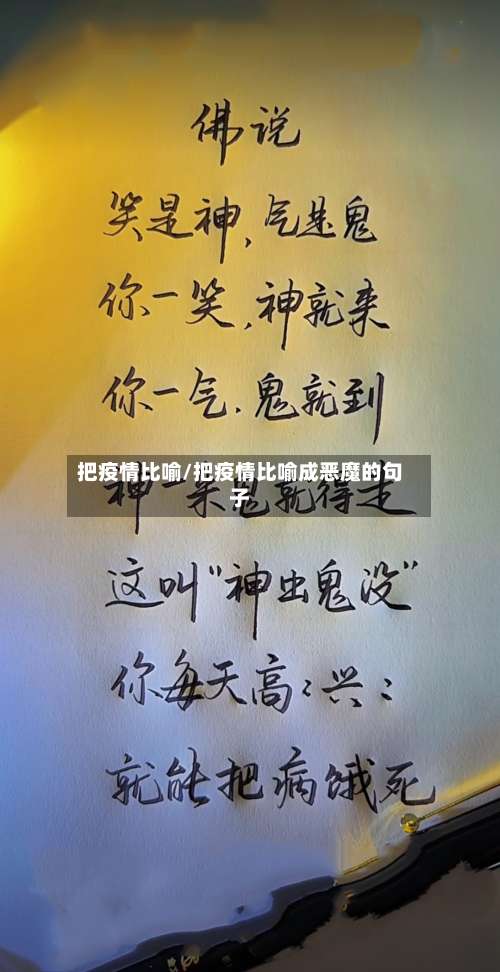 佛说
笑是神,气是鬼
你一笑,神就来
你一气.鬼就到
把疫情比喻/把疫情比喻成恶魔的句
子
神一来鬼就得走
这叫"神出鬼没"
你每天高:兴:
就能把病饿死